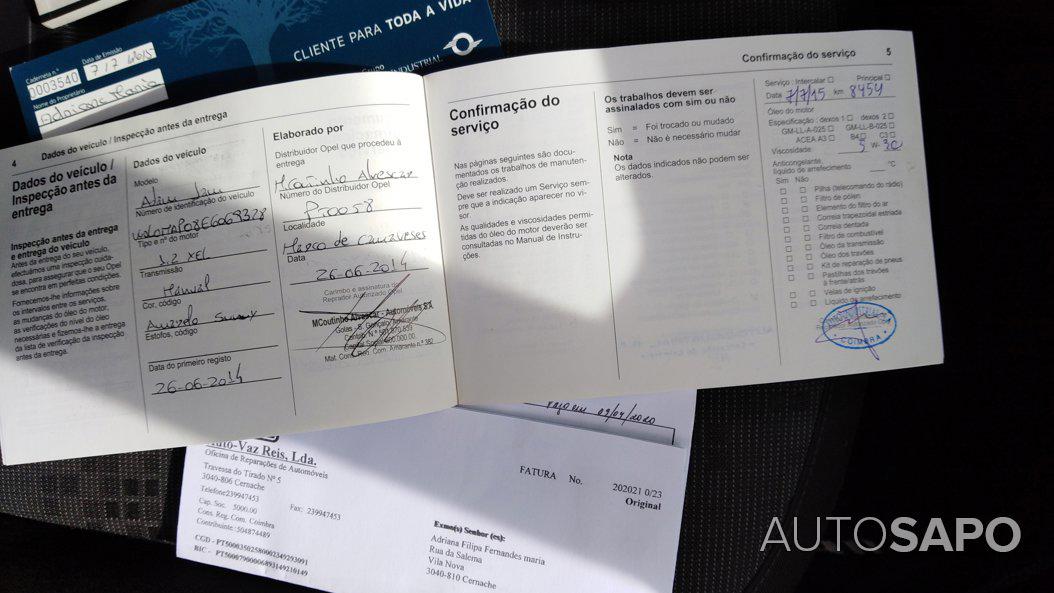 CLIENTE PARA TODA A VIDA
INDUSTRIAL
Caderneta n.º
0003540
Data de Emissão
7/7/2015
Nome do Proprietário
4 Dados do veículo / Inspecção antes da entrega
Dados do veículo /
Inspecção antes da
entrega
Inspecção antes da entrega
e entrega do veículo
Antes da entrega do seu veículo,
efectuámos uma inspecção cuida-
dosa, para assegurar que o seu Opel
se encontra em perfeitas condições.
Fornecemos-lhe informações sobre
os intervalos entre os serviços,
as mudanças do óleo do motor,
as verificações do nível do óleo
necessárias e fizemos-lhe a entrega
da lista de verificação da inspecção
antes da entrega.
Dados do veículo
Modelo
Adam
Número de identificação do veículo
Tipo e n.º do motor
1.2 XEL
Transmissão
Manual
Cor, código
Estofos, código
Data do primeiro registo
26-06-2014
Elaborado por
Distribuidor Opel que procedeu à
entrega
MCoutinho Alvescar
Número do Distribuidor Opel
PT0058
Localidade
Marco de Canaveses
Data
26-06-2014
Carimbo e assinatura do
Reprador Autorizado Opel
MCoutinho Alvescar - Automóveis, S.A.
Mat. Cons. Reg. Com. Amarante n.º 382
Confirmação do serviço 5
Confirmação do
serviço
Nas páginas seguintes são docu-
mentados os trabalhos de manuten-
ção realizados.
Deve ser realizado um Serviço sem-
pre que a indicação aparecer no vi-
sor.
As qualidades e viscosidades permi-
tidas do óleo do motor deverão ser
consultadas no Manual de Instru-
ções.
Os trabalhos devem ser
assinalados com sim ou não
Sim = Foi trocado ou mudado
Não = Não é necessário mudar
Nota
Os dados indicados não podem ser
alterados.
Serviço : Intercalar ☐ Principal ☐
Data 7/7/15 km 8454
Óleo do motor
Especificação : dexos 1 ☐ dexos 2 ☐
GM-LL-A-025 ☐ GM-LL-B-025 ☐
ACEA A3 ☐ B4 ☐ C3 ☐
Viscosidade: 5 W- 30
Anticongelante,
líquido de arrefecimento °C
Sim Não
☐ ☐ Pilha (telecomando do rádio)
☐ ☐ Filtro de pólen
☐ ☐ Elemento do filtro do ar
☐ ☐ Correia trapezoidal estriada
☐ ☐ Correia dentada
☐ ☐ Filtro de combustível
☐ ☐ Óleo da transmissão
☐ ☐ Óleo dos travões
☐ ☐ Kit de reparação de pneus
☐ ☐ Pastilhas dos travões
à frente/atrás
☐ ☐ Velas de ignição
☐ ☐ Líquido de arrefecimento
COIMBRA
Pago em 09/04/2020
Auto-Vaz Reis, Lda.
Oficina de Reparações de Automóveis
Travessa do Tirado Nº 5
3040-806 Cernache
Telefone239947453 Fax: 239947453
Cap. Soc. 5000.00
Cons. Reg. Com. Coimbra
Contribuinte : 504874489
CGD - PT50003502580002349293091
BIC - PT50007900006893149210149
FATURA No. 202021 0/23
Original
Exmo(s) Senhor (es):
Adriana Filipa Fernandes maria
Rua da Salema
Vila Nova
3040-810 Cernache
AUTOSAPO